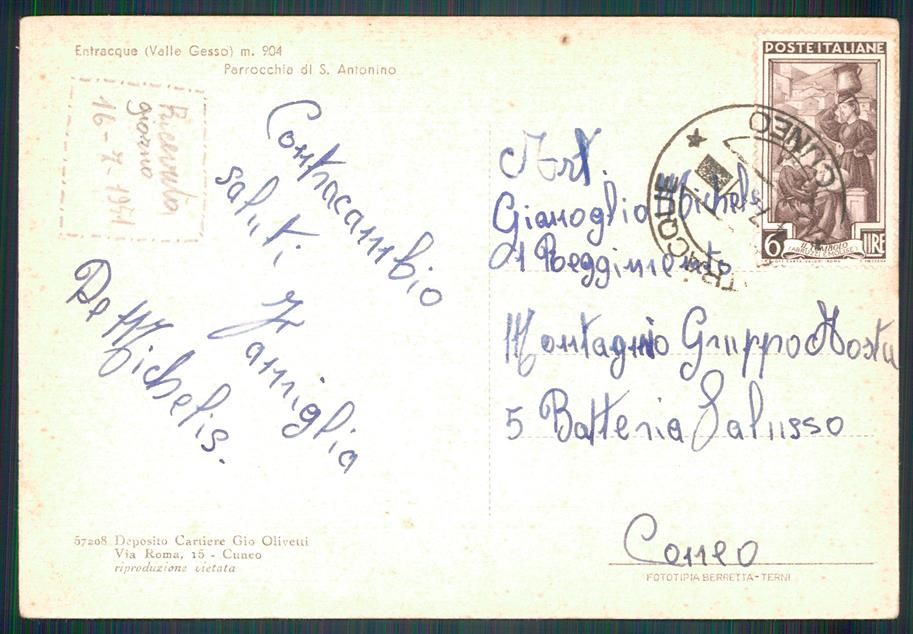 Entracque (Valle Gesso) m. 904
Parrocchia di S. Antonino
Ricevuta
giorno
16-7-1951
Contracambio
saluti
Famiglia
De Michelis.
57208 Deposito Cartiere Gio Olivetti
Via Roma, 15 - Cuneo
riproduzione vietata
POSTE ITALIANE
6 LIRE
IL TOMBOLO
(ABRUZZI E MOLISE)
CUNEO
Art.
Gianoglio Michele
1 Reggimento
Montagnio Gruppo Aosta
5 Batteria Salusso
Coneo
FOTOTIPIA BERRETTA - TERNI